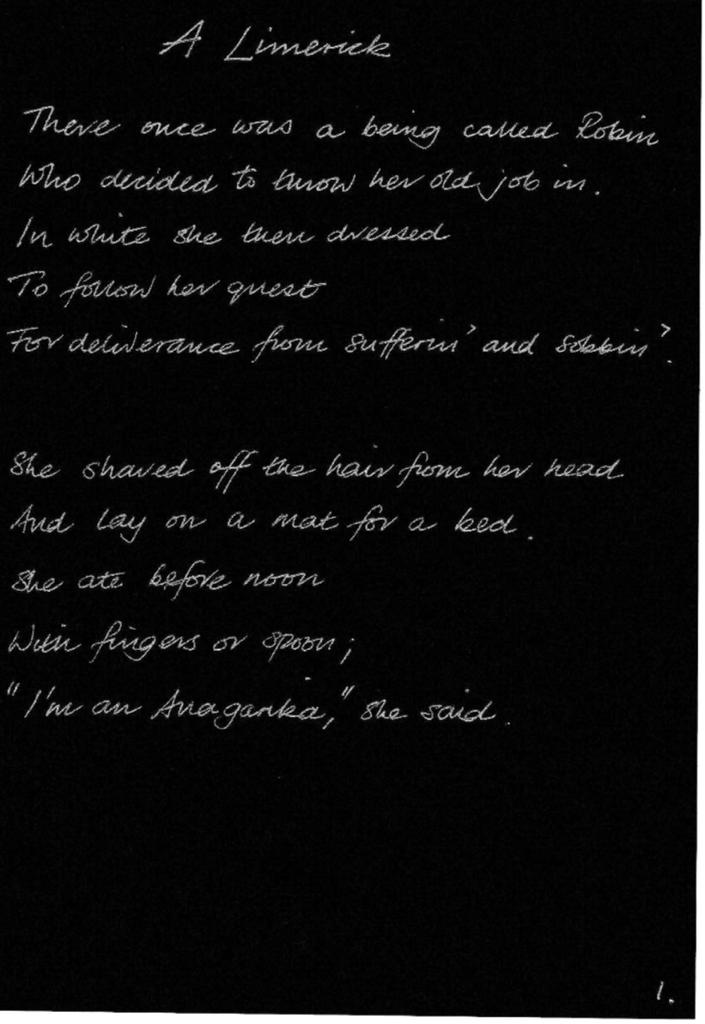 A Limerick
There once was a being called Robin
Who decided to throw her old job in.
In white she then dressed
To follow her quest
For deliverance from sufferin' and sobbin'.
She shaved off the hair from her head
And lay on a mat for a bed.
She ate before noon
With fingers or spoon;
"I'm an Anagarika," she said.
1.